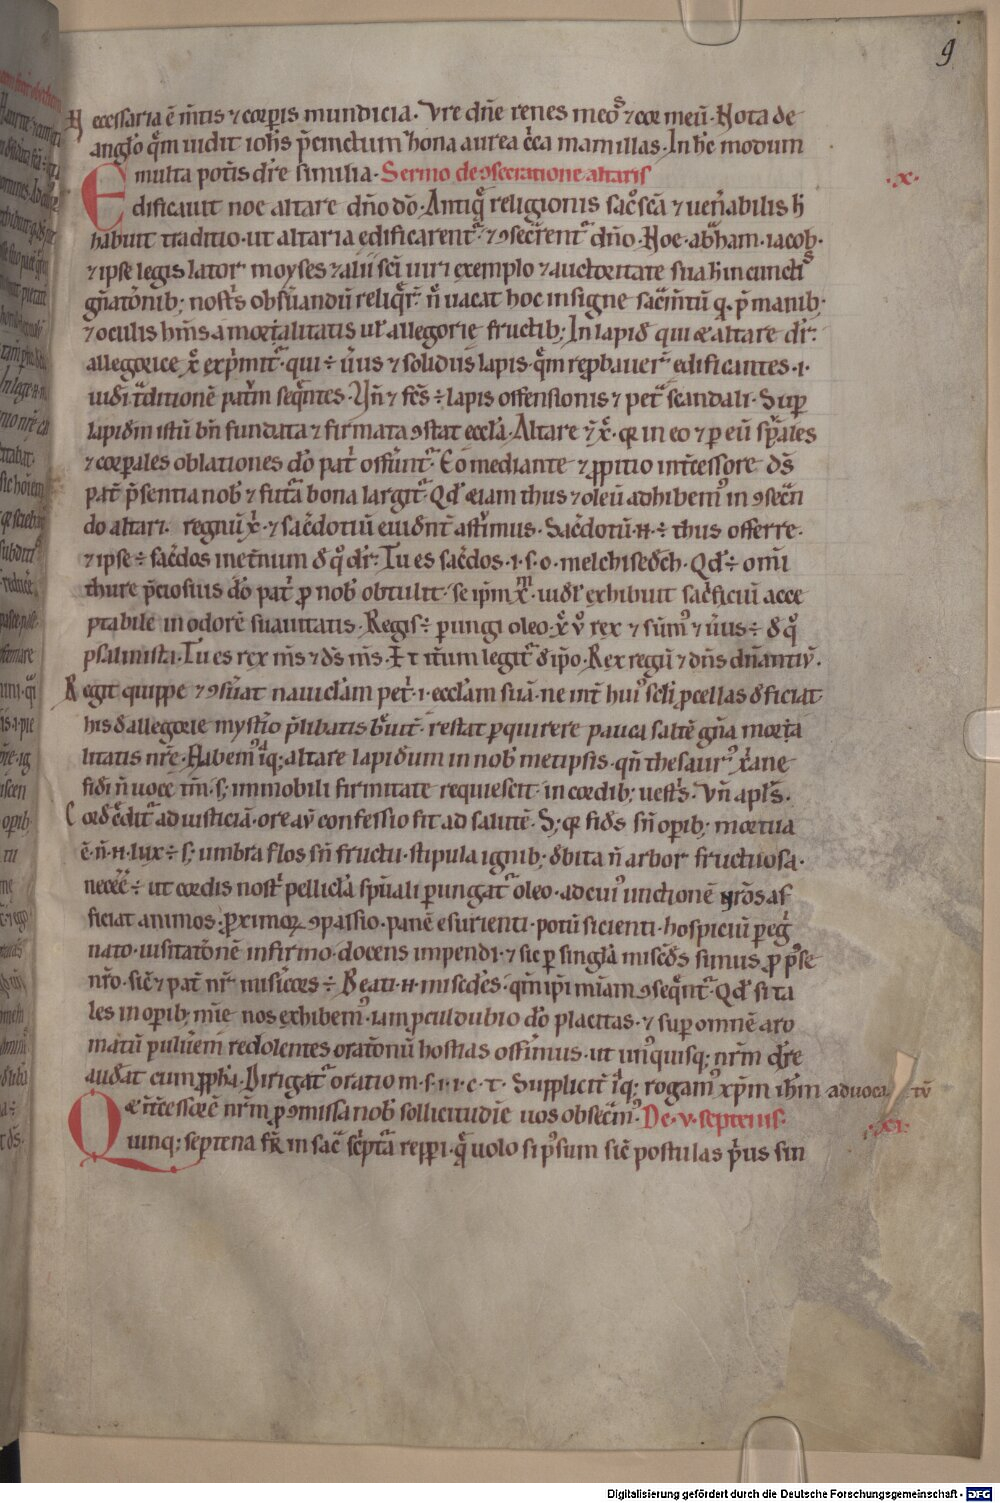 9
Necessaria ē m̄tis ⁊ corꝑis mundicia. Vre dn̄e renes meoˢ ⁊ cor meū. Nota de
angl̓o q̄m uidit ioh̓s p̄cinctum hona aurea c̓ca mamillas. In hc̄ modum
multa pot̓is dr̓e similia. Sermo de ꝯsecratione altaris .x.
Edificauit noe altare dn̄o dō. Antiqͣ religionis sac̓ sc̄a ⁊ uen̓abilis h̄
habuit traditio. ut altaria ędificarent᷑ ⁊ ꝯsec̓rent᷑ dn̄o. Noe. abh̓am. iacob.
⁊ ipse legis lator moyses ⁊ alii sc̄i uiri exemplo ⁊ auctoritate sua h̄ in cunctiˢ
gn̄atōnib; nost̓s obsūandū reliqͥr̄t. n̄ uacat hoc insigne sac̓m̄tū q. p̄ manib;
⁊ oculis hm̄s a mortalitatis ul̓ allegorie fructib; In lapiđ qui ⁊ altare dr̄:
allegorice xͨ exp̓mit᷑. qui ÷ ūus ⁊ solidus lapis. q̄m reꝓbauer̄ edificantes .i.
iuđi t̓ditionē pat̓m seqn̄tes. Iñ ⁊ fc̄s ÷ lapis offensionis ⁊ pet̓ scandali. Suꝑ
lapiđm istū bn̄ fundata ⁊ firmata ꝯstat eccl̓a. Altare ē xͨ. qꝛ in eo ⁊ ꝑ eū sp̓ales
⁊ corꝑales oblationes dō pat̓ offūnt᷑. Eo mediante ⁊ ꝓpitio int̓cessore ds̄
pat̓ p̄sentia nob̓ ⁊ fut̓a bona largit᷑. Qđ etam thus ⁊ oleū adhibem᷒ in ꝯsec̓n
do altari. regnū xͥ. ⁊ sac̓dotiū euiđnt̓ ast̓imus. Sac̓dotū .n. ÷ thus offerre.
⁊ ipse ÷ sac̓dos inet̓num đ qͦ dr̄. Tu es sac̓dos .i. s. o. melchiseđch. Qđ ÷ om̄i
thure p̄ciosius dō pat̓ ꝓ nob̓ obtulit. se ip̄m xͫ. uiđl̓ exhibuit sac̓ficiū acce
ptabile in odorē suauitatis. Regis ÷ ꝑungi oleo. xͨ ūͦ rex ⁊ sūm᷒ ⁊ ūus ÷ đ qͦ
psalmista. Tu es rex m̄s ⁊ ds̄ m̄s. Et it̓um legit᷑ đ ip̄o. Rex regū ⁊ dn̄s dn̄antiū.
Regit quippe ⁊ ꝯs̄uat nauicl̓am pet̓ .i. eccl̓am suā. ne int̓ hui᷒ scl̄i ꝓcellas đficiat
his đ allegorie myst̓io p̄libatis bͬuit̓. restat ꝑquirere pauca saltē gn̓a morta
litatis nr̄e. Habem᷒ iͣq; altare lapiđum in nob̓ metipsis. qn̄ thesaur᷒ xͥane
fiđi n̄ uoce tm̄. s; immobili firmitate requiescit in cordib; uest̓s. Vn̄ apl̓s.
Corđ c̓đit᷑ ad iusticiā. ore aū confessio fit ad salutē. S; qꝛ fiđs sn̄ opib; mortua
ē. n̄ .n. lux ÷ s; umbra flos sn̄ fructu. stipula ignib; đbita n̄ arbor fructuosa.
nec̄ē ÷ ut cordis nost̓ pellicl̓a spūali ꝑungat᷑ oleo. ad cui᷒ unctionē nr̄os af
ficiat animos. ꝓximoꝝ ꝯpassio. panē esurienti. potū sicienti. hospiciū ꝑegͥ
nato. uisitatōnē infirmo. docens impendi. ⁊ sic ꝑ singl̓a misc̓đs simus ꝓ p̓sse
nr̄o. sic̄ ⁊ pat̓ nr̄ mis̓icors ÷. Beati .n. misc̓des. qm̄ ip̄i mīam ꝯseqn̄t᷑. Qđ si ta
les in oꝑib; mīe nos exhibem᷒. iam ꝓculdubio dō placitas. ⁊ suꝑ omnē aro
matū puluem̄ redolentes oratōnū hostias offim̄us. ut un᷒quisq; nr̄m dr̄e
audat cum ꝓph̄a. Dirigat᷑ oratio m. s. i. i. c. t. Supplicit̓ iͣq; rogam᷒ xp̄m ih̄m aduoca tū
⁊ int̓cessorē nr̄m ꝓ ꝯmissa nob̓ sollicitudie uos obsec̓m᷒. De .v. septenis. .xi.
Quinq; septena fr̄ in sac̄ sc̓pt̓a repp̓i. qͣ uolo si p̓sum sic̄ postulas p̓us sin
Digitalisierung gefördert durch die Deutsche Forschungsgemeinschaft - DFG